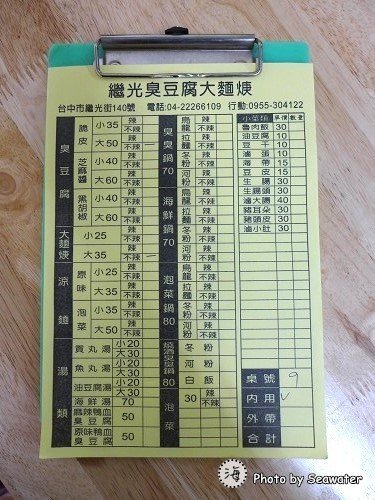 繼光臭豆腐大麵焿
台中市繼光街140號 電話:04-22266109 行動:0955-304122
臭豆腐
脆皮 小35 辣 不辣
大50 辣 不辣
芝麻醬 小40 辣 不辣
大60 辣 不辣
黑胡椒 小40 辣 不辣
大60 辣 不辣
大麵焿
小25 辣 不辣
大35 辣 不辣
涼麵
原味 小25 辣 不辣
大35 辣 不辣
泡菜 小35 辣 不辣
大50 辣 不辣
湯類
貢丸湯 小20 大30
魚丸湯 小20 大30
油豆腐湯 小20 大30
海鮮湯 70
麻辣鴨血臭豆腐 50
原味鴨血臭豆腐 50
臭臭鍋70
烏龍 辣 不辣
拉麵 辣 不辣
冬粉 辣 不辣
河粉 辣 不辣
海鮮鍋70
烏龍 辣 不辣
拉麵 辣 不辣
冬粉 辣 不辣
河粉 辣 不辣
泡菜鍋80
烏龍 辣 不辣
拉麵 辣 不辣
冬粉 辣 不辣
河粉 辣 不辣
燒酒臭臭鍋80
冬粉
河粉
白飯
泡菜
30 辣 不辣
小菜類 單價 數量
魯肉飯 30
油豆腐 10
豆干 10
滷蛋 10
海帶 15
豆皮 15
生腸 30
生腸頭 30
滷大腸 40
豬耳朵 30
豬頭皮 30
滷小肚 30
桌號 9
內用 ✓
外帶
合計
海 Photo by Seawater